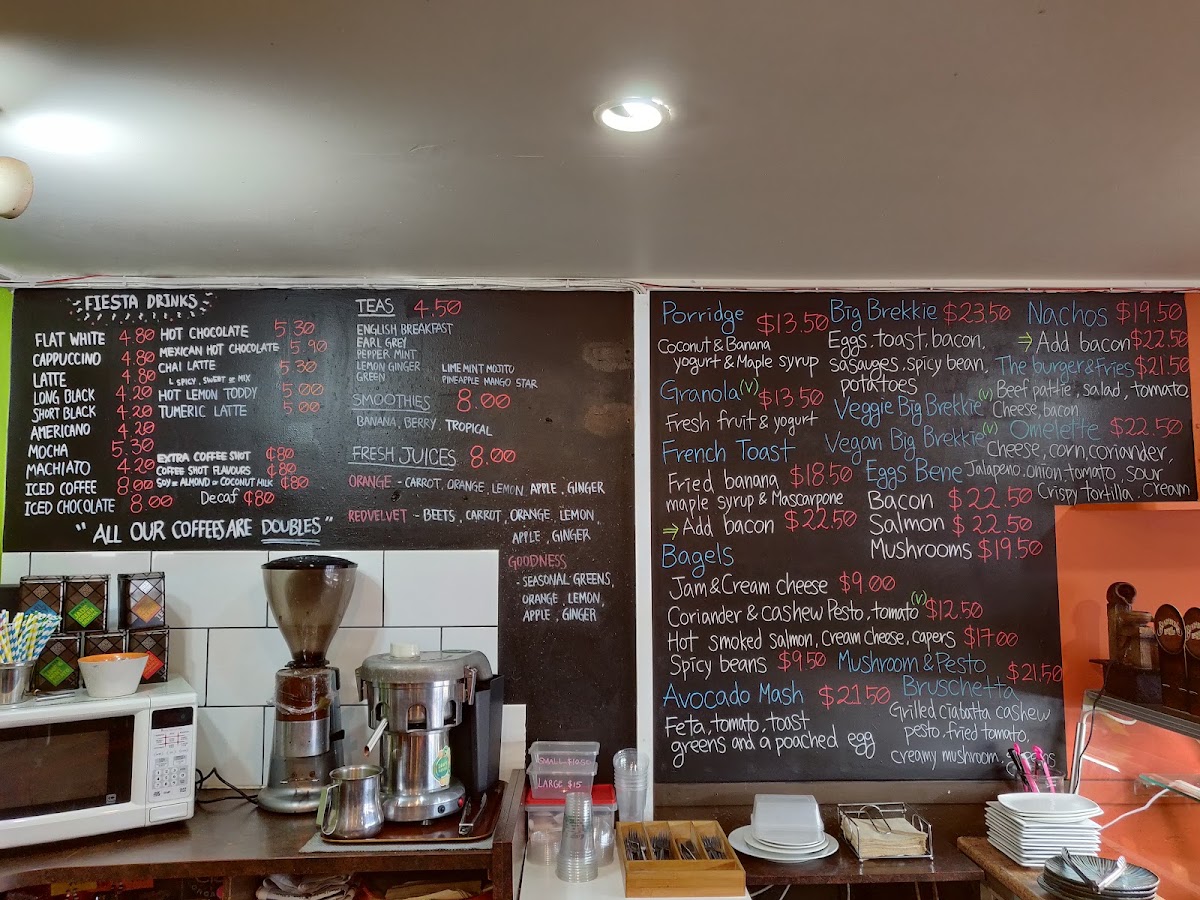 FIESTA DRINKS
FLAT WHITE 4.80
CAPPUCCINO 4.80
LATTE 4.80
LONG BLACK 4.20
SHORT BLACK 4.20
AMERICANO 4.20
MOCHA 5.30
MACHIATO 4.20
ICED COFFEE 8.00
ICED CHOCOLATE 8.00
HOT CHOCOLATE 5.30
MEXICAN HOT CHOCOLATE 5.90
CHAI LATTE 5.30
L SPICY, SWEET OR MIX
HOT LEMON TODDY 5.00
TUMERIC LATTE 5.00
EXTRA COFFEE SHOT ¢80
COFFEE SHOT FLAVOURS ¢80
SOY OR ALMOND OR COCONUT MILK ¢80
Decaf ¢80
"ALL OUR COFFEES ARE DOUBLES"
TEAS 4.50
ENGLISH BREAKFAST
EARL GREY
PEPPER MINT
LEMON GINGER
GREEN
LIME MINT MOJITO
PINEAPPLE MANGO STAR
SMOOTHIES 8.00
BANANA, BERRY, TROPICAL
FRESH JUICES 8.00
ORANGE - CARROT, ORANGE, LEMON, APPLE, GINGER
REDVELVET - BEETS, CARROT, ORANGE, LEMON,
APPLE, GINGER
GOODNESS
- SEASONAL GREENS,
ORANGE, LEMON,
APPLE, GINGER
Porridge $13.50
Coconut & Banana
yogurt & Maple syrup
Granola (V) $13.50
Fresh fruit & yogurt
French Toast
Fried banana $18.50
maple syrup & Mascarpone
⇒ Add bacon $22.50
Bagels
Jam & Cream cheese $9.00
Coriander & cashew Pesto, tomato (V) $12.50
Hot smoked salmon, cream cheese, capers $17.00
Spicy beans $9.50
Avocado Mash $21.50
Feta, tomato, toast
greens and a poached egg
Big Brekkie $23.50
Eggs, toast, bacon,
sasauges, spicy bean,
potatoes
Veggie Big Brekkie (V)
Vegan Big Brekkie (V)
Eggs Bene
Bacon $22.50
Salmon $22.50
Mushrooms $19.50
Mushroom & Pesto
Bruschetta $21.50
Grilled ciabatta cashew
pesto, fried tomato,
creamy mushroom,
Nachos $19.50
⇒ Add bacon $22.50
The burger & Fries $21.50
Beef pattie, salad, tomato,
Cheese, bacon
Omelette $22.50
Cheese, corn, coriander,
Jalapeno, onion, tomato, sour
Crispy tortilla, cream
SMALL
LARGE $15